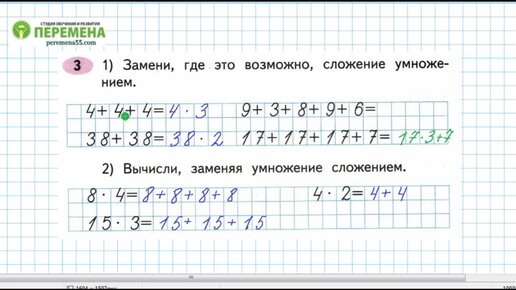 СТУДИЯ ОБУЧЕНИЯ И РАЗВИТИЯ
ПЕРЕМЕНА
peremena55.com
3 1) Замени, где это возможно, сложение умноже-
нием.
4+ 4+ 4= 4 · 3 9+ 3+ 8+ 9+ 6=
38+ 38= 38 · 2 17+ 17+ 17+ 7= 17·3+7
2) Вычисли, заменяя умножение сложением.
8 · 4= 8+ 8+ 8+ 8 4 · 2= 4+ 4
15 · 3= 15+ 15+ 15